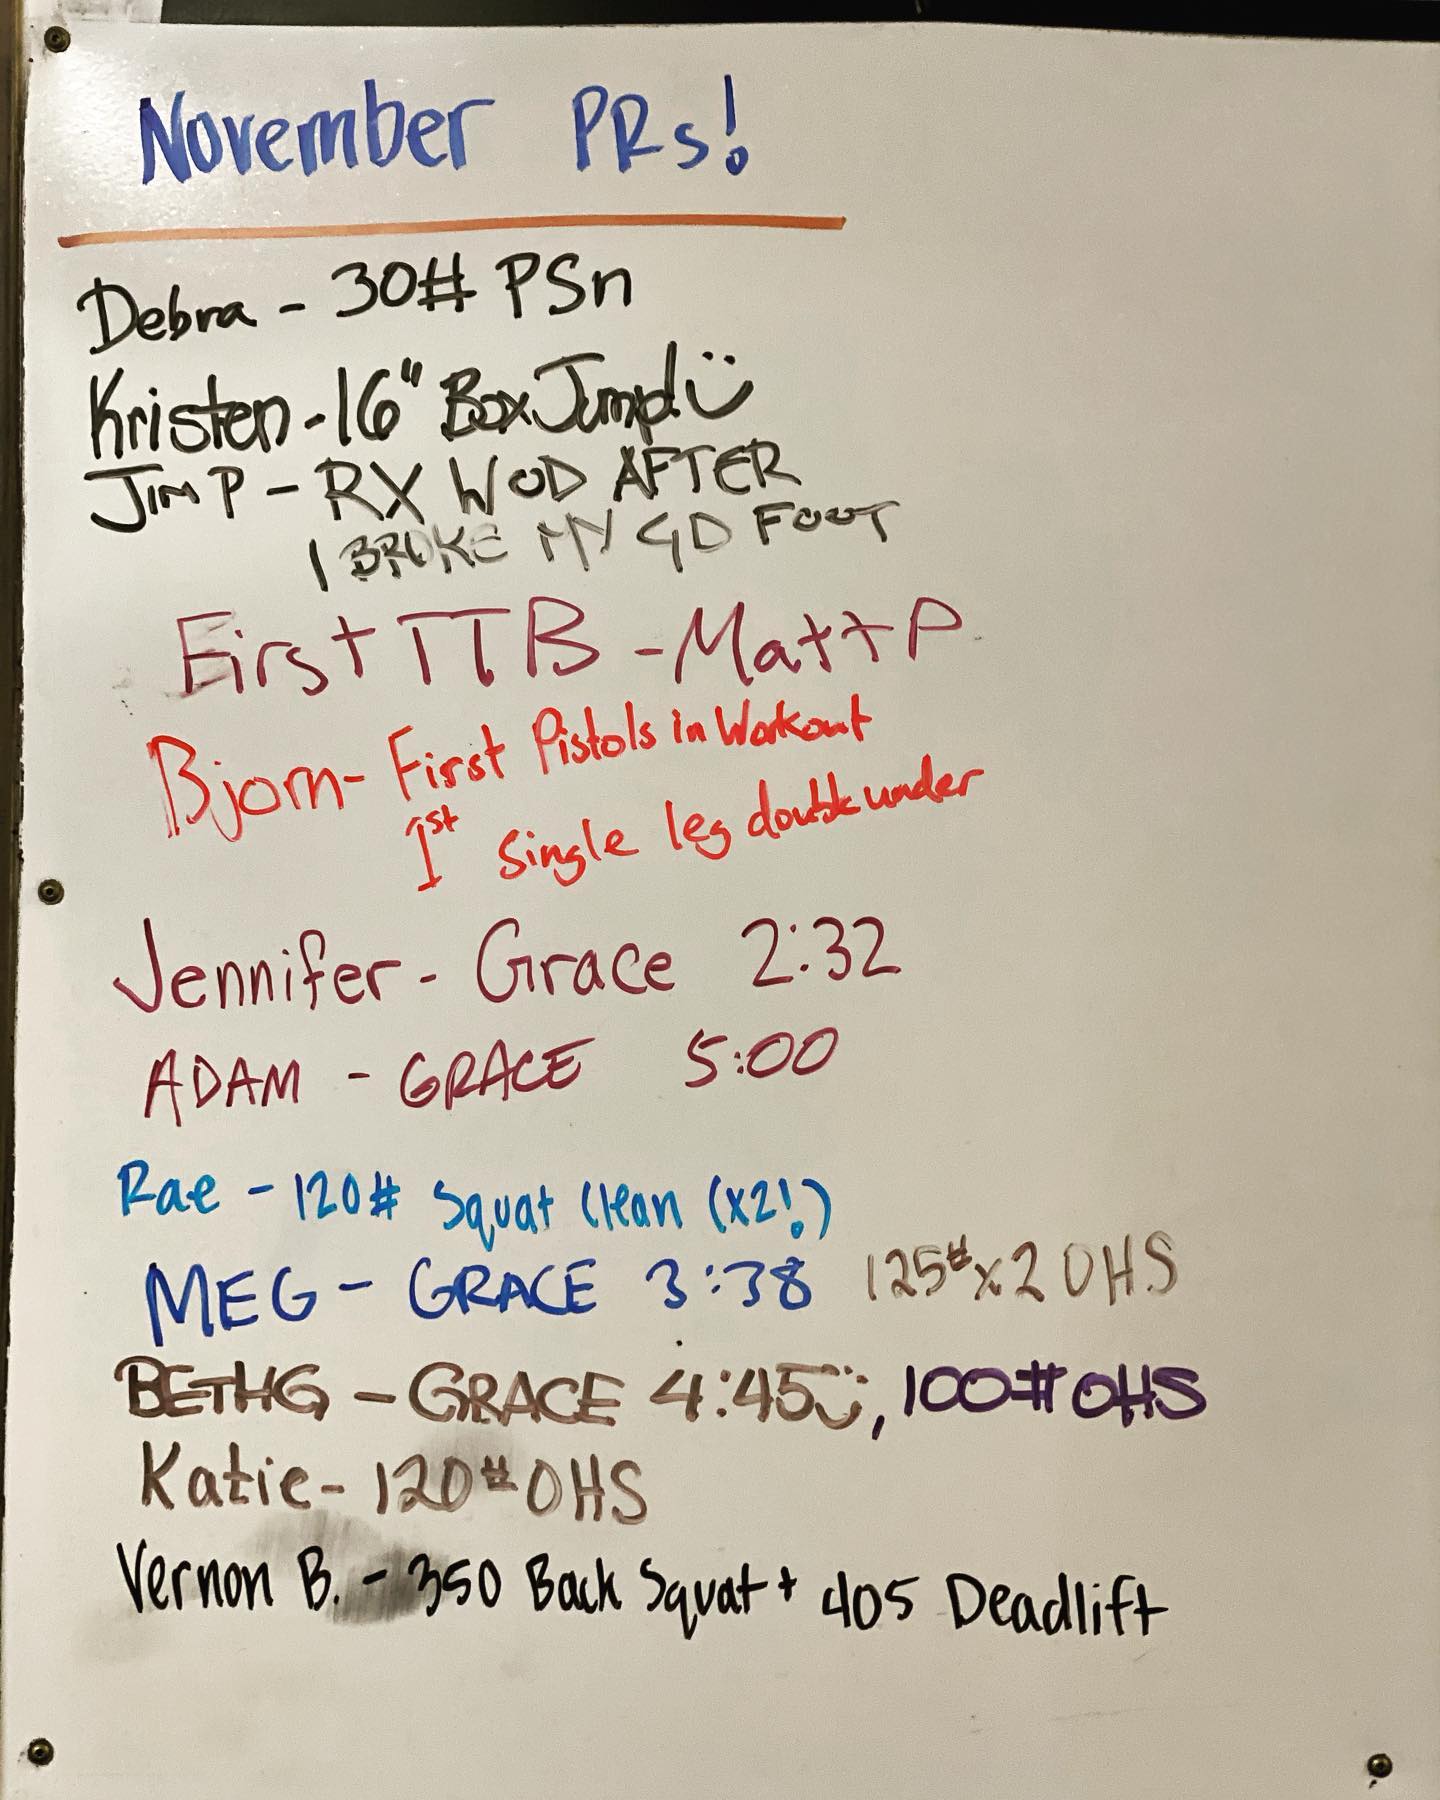 November PRs!
Debra - 30# PSn
Kristen - 16" Box Jump! :)
JIM P - RX WOD AFTER
I BROKE MY GD FOOT
First TTB - Matt P
Bjorn - First Pistols in Workout
1st Single leg double under
Jennifer - Grace 2:32
ADAM - GRACE 5:00
Rae - 120# Squat Clean (x2!)
MEG - GRACE 3:38 125# x 2 OHS
BETHG - GRACE 4:45 :), 100# OHS
Katie - 120# OHS
Vernon B. - 350 Back Squat + 405 Deadlift